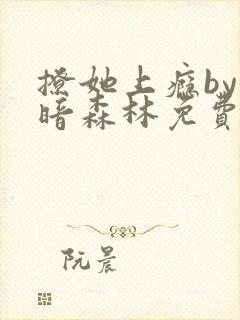 撩她上癮by
暗森林免費
阮晨